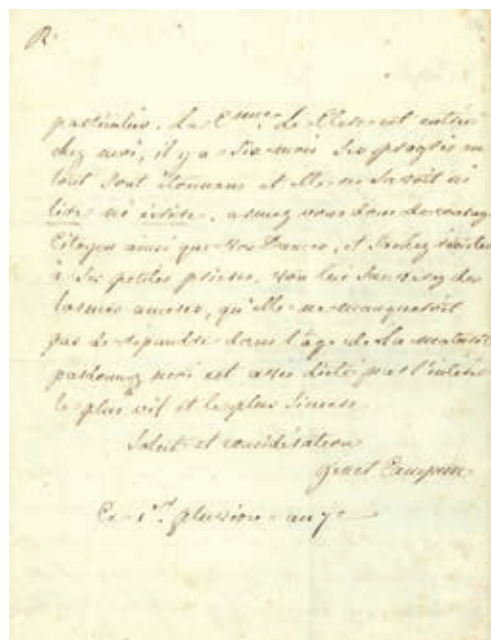 particulier. La C.enne Le Clerc est entrée
chez moi, il y a six mois ses progrès en
tout sont étonnans et elle ne savoit ni
lire ni écrire. armez vous donc de courage
Citoyen ainsi que vos Dames, et sachez résister
à ses petites prières, vous leur sauverez des
larmes ameres, qu'elle ne manqueroit
pas de repandre dans l'age de la maturité
pardonnez moi cet avis dicté par l'intérêt
le plus vif et le plus sincere.
Salut et considération
Genet Campan
Ce 1er. pluviose an 7e